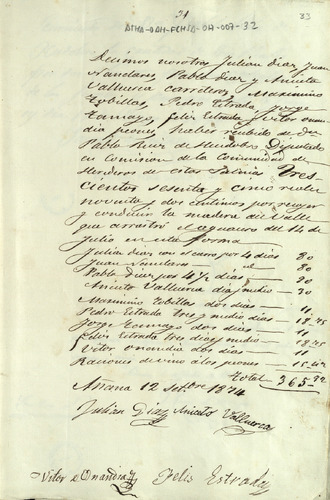 21
33
ATHA-DAH-FCHSA-OH-007-32
Decimos nosotros Julian Diaz, Juan
Pablo Diaz y Aniceto
Valluerca carreteros, Maximino
Tobillas, Pedro Estrada, Jorge
Tamayo, Felis Estrada y Vitor Onan
dia peones, haber recibido de Don
Pablo Ruiz de Diputado
en Comision de la Comunidad de
Herederos de estas Salinas tres
cientos sesenta y cinco reales
noventa y dos centimos por recoger
y conducir la madera del Valle
que arrastró el aguacero del 14 de
Julio en esta forma
Julian Diaz con el carro por 4 dias 80
Juan id 80
Pablo Diaz por 4 1/2 dias 90
Aniceto Valluerca dia y medio 30
Maximino Tobillas dos dias 11
Pedro Estrada tres y medio dias 18.75
Jorge Tamayo dos dias 11
Felis Estrada tres dias y medio 18.75
Vitor Onandia dos dias 11
Raciones de vino á los peones
Total 365-92
Anana 12 Stbre 1874
Julian Diaz Aniceto Valluerca
Vitor de Onandia Felis Estrada